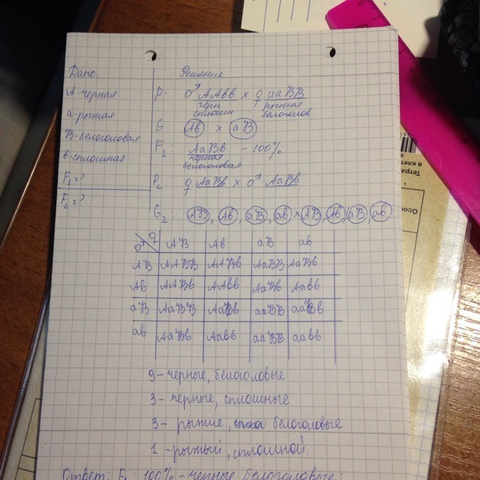 Дано
Решение
А-черная
P: ♂ААвв × ♀ааВВ
черн рыжая
сплошн белоголов
а-рыжая
G: Ав × аВ
В-белоголовая
F₁: АаВв - 100%
черная
белоголовая
в-сплошная
F₁=?
P₂ ♀АаВв × ♂АаВв
F₂=?
G₂: АВ, Ав, аВ, ав × АВ, Ав, аВ, ав
♂ ♀ АВ Ав аВ ав
АВ ААВВ ААВв АаВВ АаВв
Ав ААВв ААвв АаВв Аавв
аВ АаВВ АаВв ааВВ ааВв
ав АаВв Аавв ааВв аавв
9-черные, белоголовые
3-черные, сплошные
3-рыжие, белоголовые
1-рыжий, сплошной.
Ответ: F₁: 100% -черные белоголовые;
Тетра
в клет
Осо